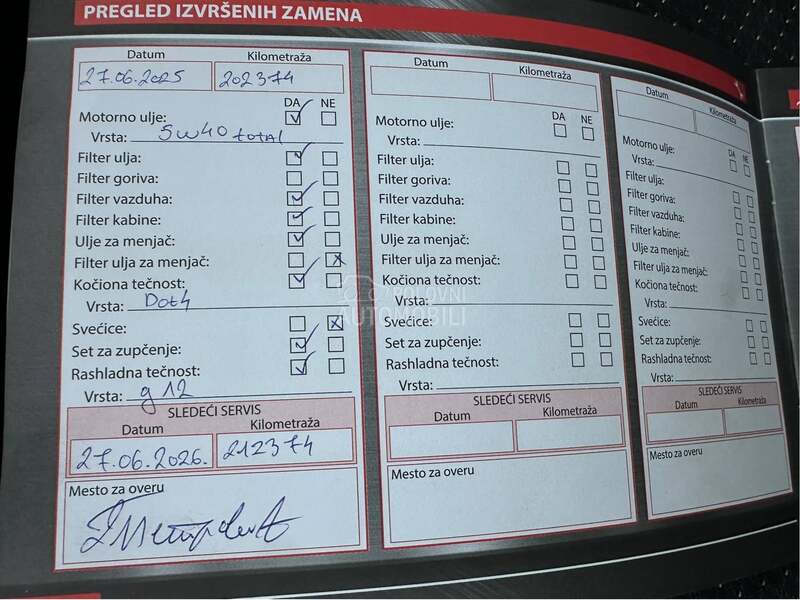 PREGLED IZVRŠENIH ZAMENA
Datum Kilometraža
27.06.2025 202374
DA NE
Motorno ulje:
Vrsta: 5w40 total
Filter ulja:
Filter goriva:
Filter vazduha:
Filter kabine:
Ulje za menjač:
Filter ulja za menjač:
Kočiona tečnost:
Vrsta: Dot4
Svećice:
Set za zupčenje:
Rashladna tečnost:
Vrsta: g12
SLEDEĆI SERVIS
Datum Kilometraža
27.06.2026. 212374
Mesto za overu
Datum Kilometraža
DA NE
Motorno ulje:
Vrsta:
Filter ulja:
Filter goriva:
Filter vazduha:
Filter kabine:
Ulje za menjač:
Filter ulja za menjač:
Kočiona tečnost:
Vrsta:
Svećice:
Set za zupčenje:
Rashladna tečnost:
Vrsta:
SLEDEĆI SERVIS
Datum Kilometraža
Mesto za overu
Datum Kilometraža
DA NE
Motorno ulje:
Vrsta:
Filter ulja:
Filter goriva:
Filter vazduha:
Filter kabine:
Ulje za menjač:
Filter ulja za menjač:
Kočiona tečnost:
Vrsta:
Svećice:
Set za zupčenje:
Rashladna tečnost:
Vrsta:
SLEDEĆI SERVIS
Datum Kilometraža
Mesto za overu
POLOVNI
AUTOMOBILI